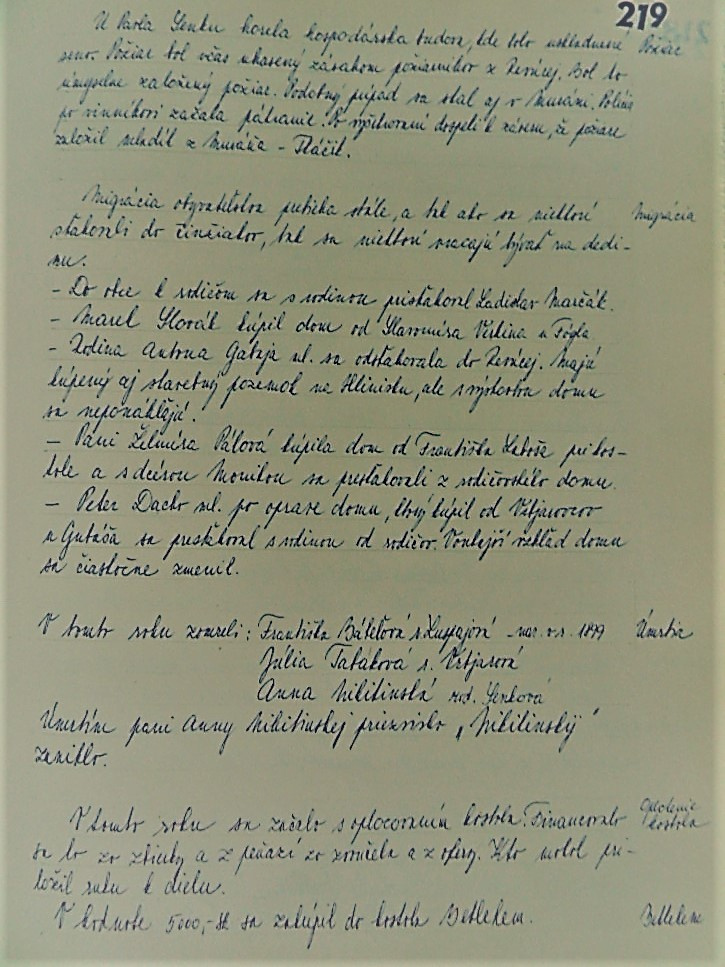 219
U Pavla Senku horela hospodárska budova, kde bolo uskladnené Požiar
seno. Požiar bol včas uhasený zásahom požiarnikov z Revúcej. Bol to
úmyselne založený požiar. Podobný prípad sa stal aj v Muráni. Polícia
po vinníkovi začala pátranie. Po vyšetrovaní dospeli k záveru, že požiare
založil mladík z Muráňa - Tkáčik.
Migrácia obyvateľstva prebieha stále, a tak ako sa niektorí Migrácia
sťahovali do činžiakov, tak sa niektorí vracajú bývať na dedi-
nu.
- Do obce k rodičom sa s rodinou prisťahoval Ladislav Marčák.
- Marek Slovák kúpil dom od Slavomíra Veškina u Fógla.
- Rodina Antona Gabzja ml. sa odsťahovala do Revúcej. Majú
kúpený aj stavebný pozemok na Hlinisku, ale s výstavbou domu
sa neponáhľajú.
- Pani Želmíra Pálová kúpila dom od Františka Laboša pri kos-
tole a s dcérou Monikou sa presťahovali z rodičovského domu.
- Peter Dacho ml. po oprave domu, ktorý kúpil od Vrbjarovcov
u Gubáša sa presťahoval s rodinou od rodičov. Vonkajší vzhľad domu
sa čiastočne zmenil.
V tomto roku zomreli: Františka Bábeľová r. nar. v r. 1899 Úmrtie
Júlia Tabáková r.
Anna Nikitinská rod. Senková
Úmrtím pani Anny Nikitinskej priezvisko „Nikitinský“
zaniklo.
V tomto roku sa začalo s oplocovaním kostola. Financovalo Oplotenie kostola
sa to zo zbierky a z peňazí zo zvončeka a z ofery. Kto mohol pri-
ložil ruku k dielu.
V hodnote 5000,- Sk sa zakúpil do kostola Betlehem. Betlehem